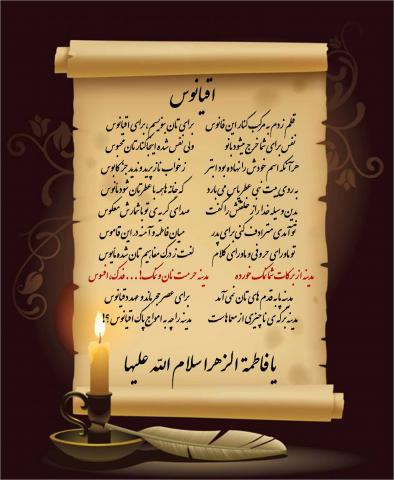 اقیانوس
قلم زدم به مرکب کنار این فانوس برای تان بنویسم، برای اقیانوس
نفس برای شما خرج میشود بانو ولی نفس شده اینجا کنارتان محبوس
هر آنکه اسم خودش را نهاده بود ابتر ز خواب ناز پرید و ندید جز کابوس
به روی بیت نبی عطر یاس می بارد که خانه ها همه با عطرتان شود مانوس
بدین وسیله خدا راز خلقتش را گفت صدای گریه ی تو با شمارش معکوس
تو آمدی مترادف کنی برای پدر میان فاطمه و آمنه در این قاموس
تو ماورای حروفی و ماورای کلام لغت ز درک مفاهیم تان شده مایوس
مدینه از برکات شما نمک خورده مدینه حرمت نان و نمک!... فدک، افسوس
مدینه پا به قدم های تان نمی آمد برای عصر حجر ماند و عهد دقیانوس
مدینه برکه ی ناچیزی از معماهاست مدینه را چه به امواج پاک اقیانوس؟!
یا فاطمة الزهرا سلام الله علیها